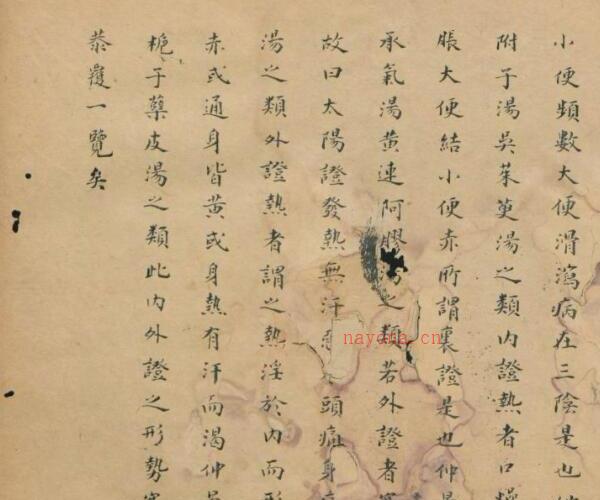 小便頻數大便滑瀉病在三陰是也
附子湯吳茱萸湯之類內證熱者口燥
脹大便結小便赤所謂裏證是也仲景
承氣湯黃連阿膠湯之類若外證者
故曰太陽證發熱無汗惡頭痛身
湯之類外證熱者謂之熱淫於內而形
赤或通身皆黃或身熱有汗而渴仲景
梔子蘗皮湯之類此內外證之形勢
恭覆一覽矣
nayona.cn